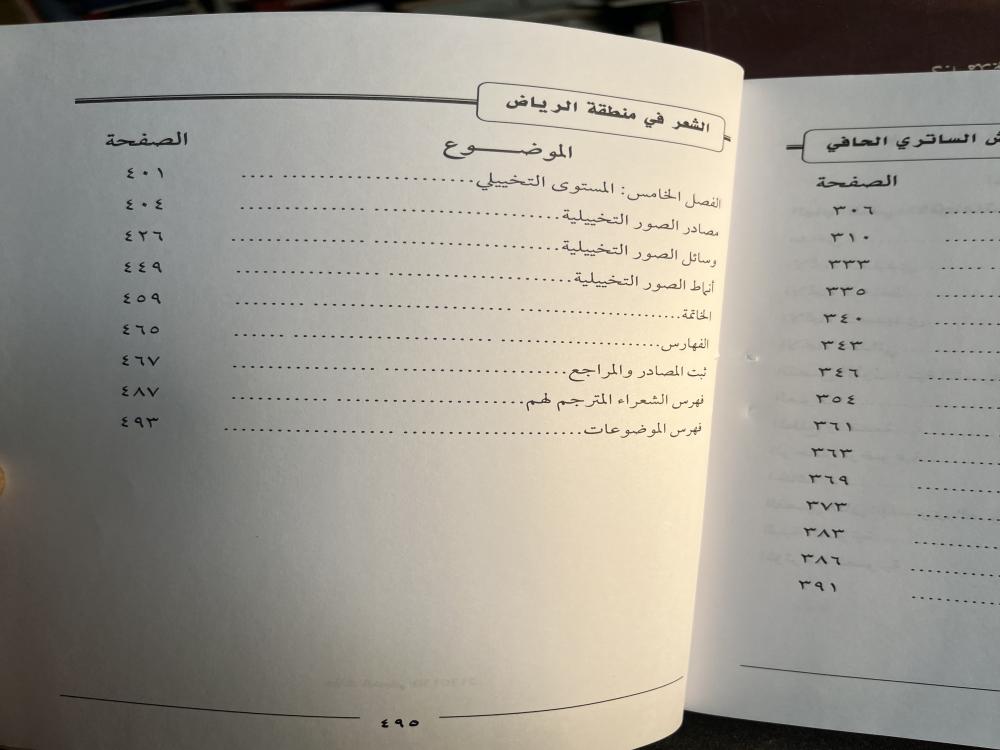 ش الساتري الحافي
الصفحة
٣٠٦
٣١٠
٣٣٣
٣٣٥
٣٤٠
٣٤٣
٣٤٦
٣٥٤
٣٦١
٣٦٣
٣٦٩
٣٧٣
٣٨٣
٣٨٦
٣٩١
الشعر في منطقة الرياض
الموضـــوع الصفحة
الفصل الخامس: المستوى التخييلي ٤٠١
مصادر الصور التخييلية ٤٠٤
وسائل الصور التخييلية ٤٢٦
أنماط الصور التخييلية ٤٤٩
الخاتمة ٤٥٩
الفهارس ٤٦٥
ثبت المصادر والمراجع ٤٦٧
فهرس الشعراء المترجم لهم ٤٨٧
فهرس الموضوعات ٤٩٣
٤٩٥